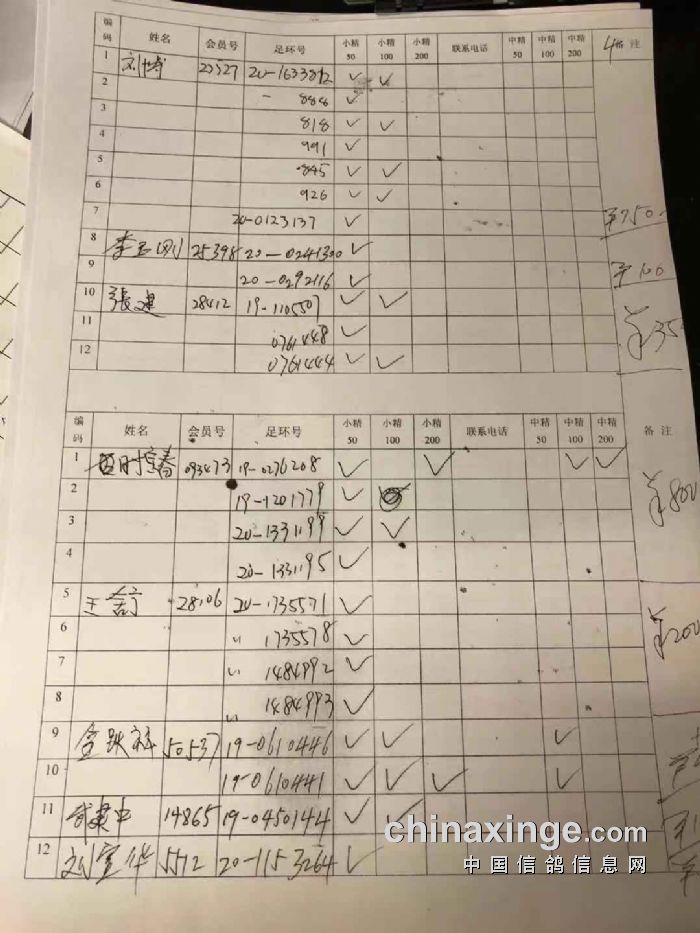 编码 姓名 会员号 足环号 小精50 小精100 小精200 联系电话 中精50 中精100 中精200 备注
1 刘博 23527 20-1633812 ✓ ✓
2 - 888 ✓
3 818 ✓ ✓
4 991 ✓
5 845 ✓ ✓
6 926 ✓ ✓
7 20-0123137 ✓ ¥750
8 李玉刚 25398 20-0241300 ✓
9 20-0292116 ✓ ¥100
10 張建 28412 19-1105507 ✓ ✓
11 0761448 ✓ ¥35
12 0761444 ✓ ✓
编码 姓名 会员号 足环号 小精50 小精100 小精200 联系电话 中精50 中精100 中精200 备注
1 093473 19-0276208 ✓ ✓ ✓ ✓
2 19-1201779 ✓ ¥800
3 20-1331199 ✓ ✓
4 20-1331195 ✓
5 28106 20-1735571 ✓
6 〃 1735578 ✓ ¥200
7 〃 1484992 ✓
8 〃 1484993 ✓
9 50537 19-0610446 ✓ ✓ ✓
10 19-0610441 ✓ ✓ ✓ ✓
11 14865 19-0450144 ✓ ✓
12 刘宝华 5512 20-1153264 ✓
chinaxinge.com
中国信鸽信息网